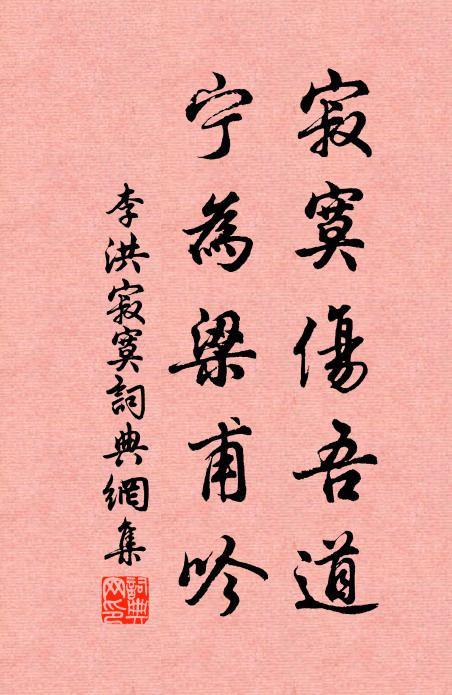 寂寞傷吾道
宁為梁甫吟
李洪寂寞詞典網集
詞典網印